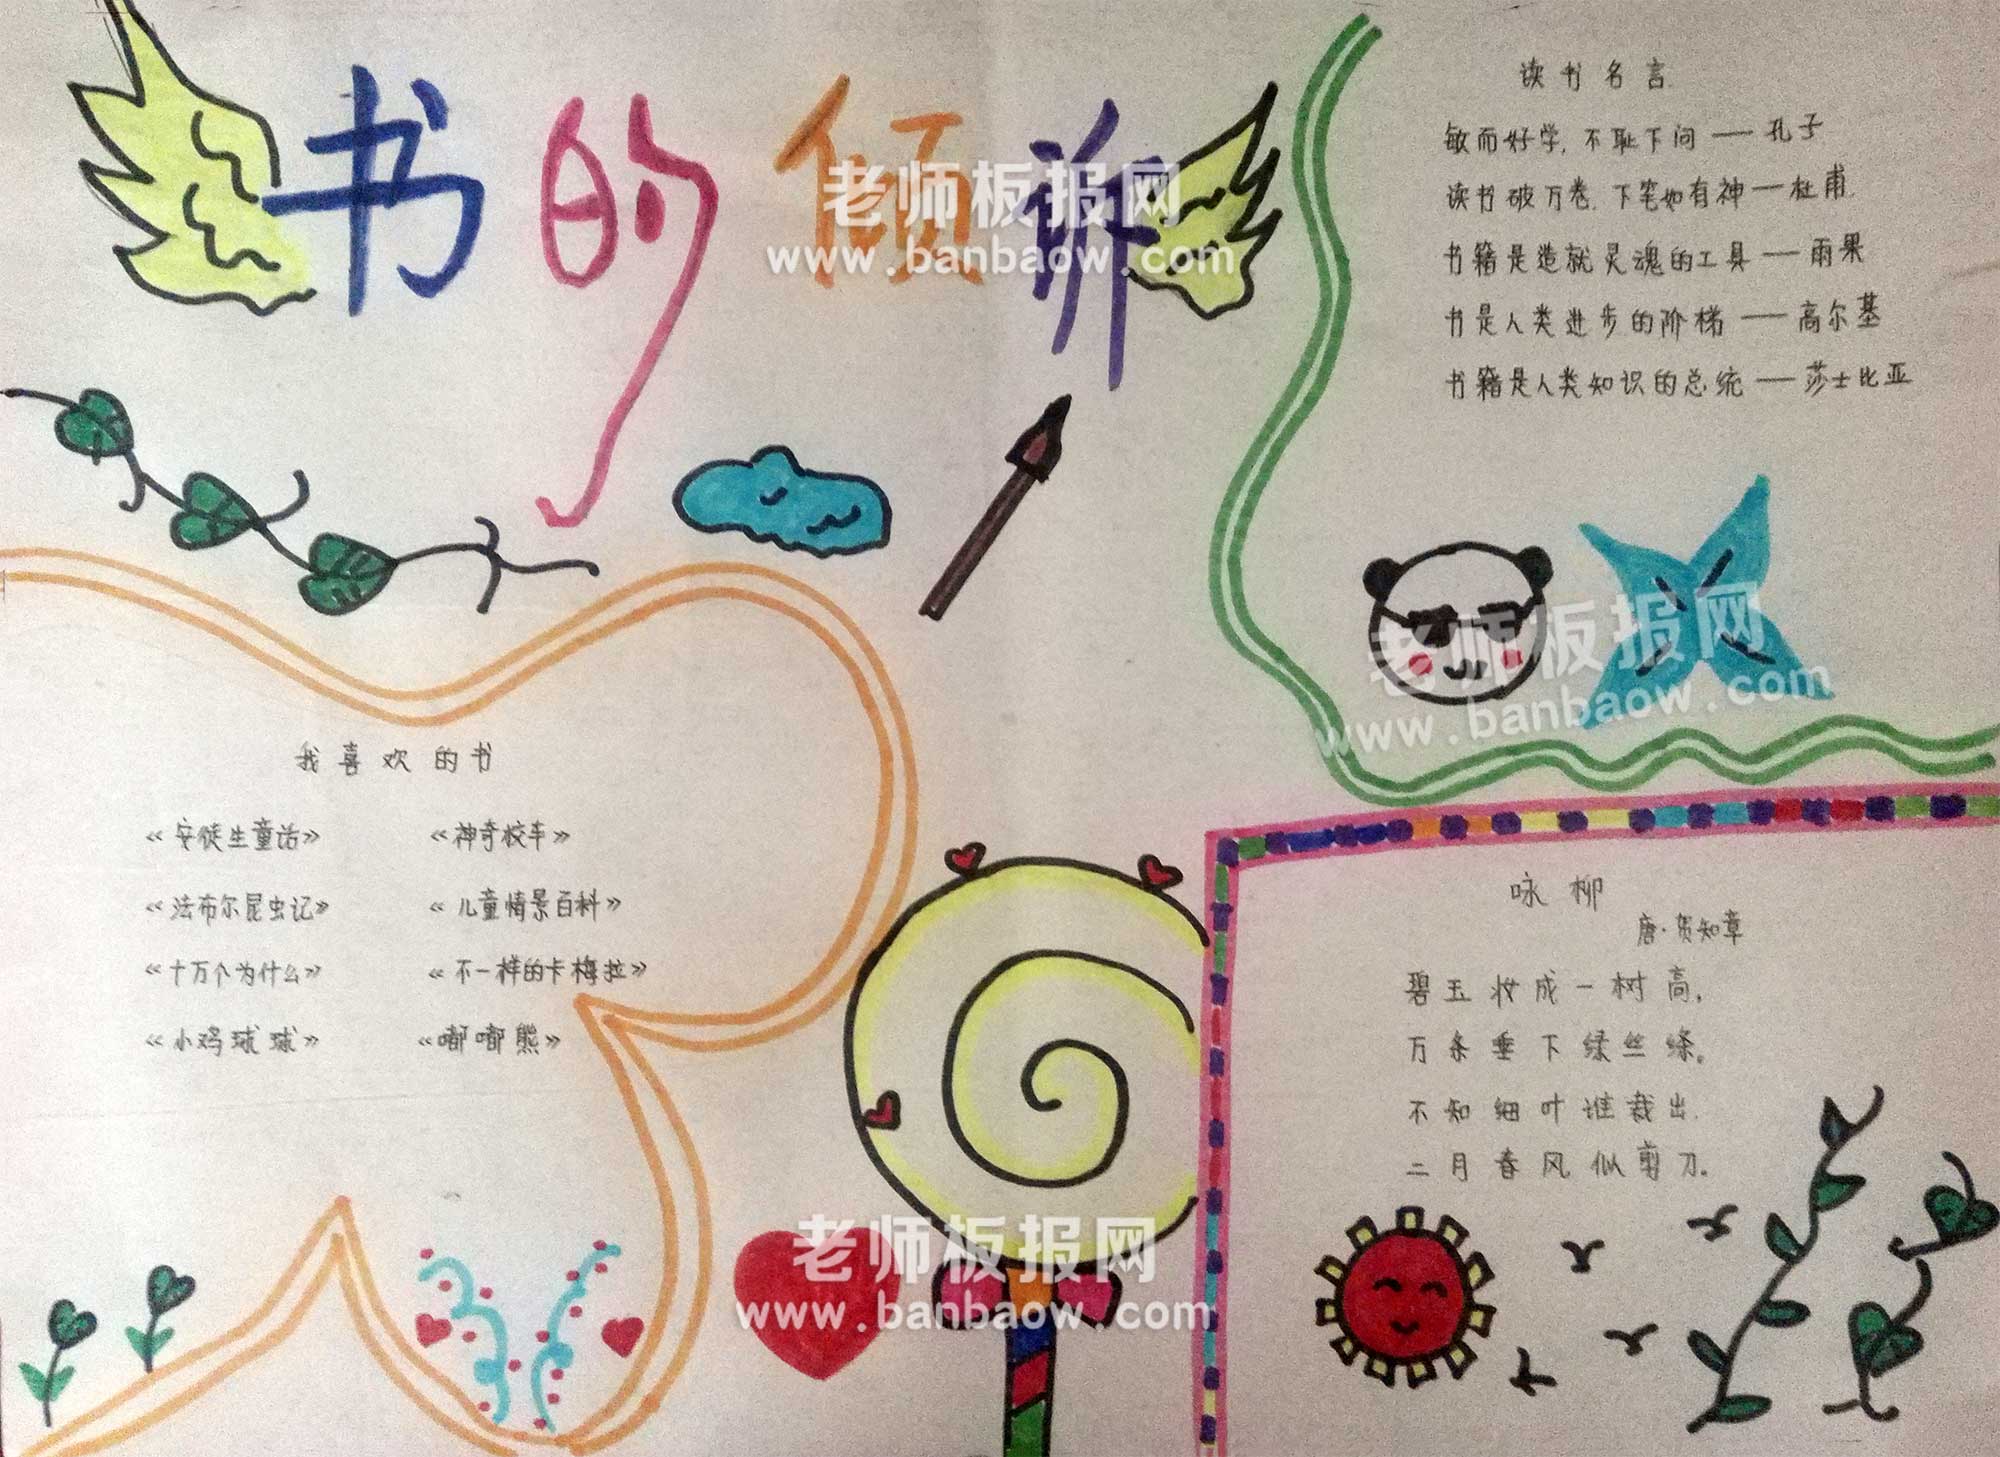 书的倾听
老师板报网
www.banbaow.com
读书名言
敏而好学,不耻下问——孔子
读书破万卷,下笔如有神——杜甫.
书籍是造就灵魂的工具——雨果
书是人类进步的阶梯——高尔基
书籍是人类知识的总统——莎士比亚
老师板报网
www.banbaow.com
我喜欢的书
《安徒生童话》 《神奇校车》
《法布尔昆虫记》 《儿童情景百科》
《十万个为什么》 《不一样的卡梅拉》
《小鸡球球》 《嘟嘟熊》
咏柳
唐·贺知章
碧玉妆成一树高,
万条垂下绿丝绦。
不知细叶谁裁出.
二月春风似剪刀。
老师板报网
www.banbaow.com